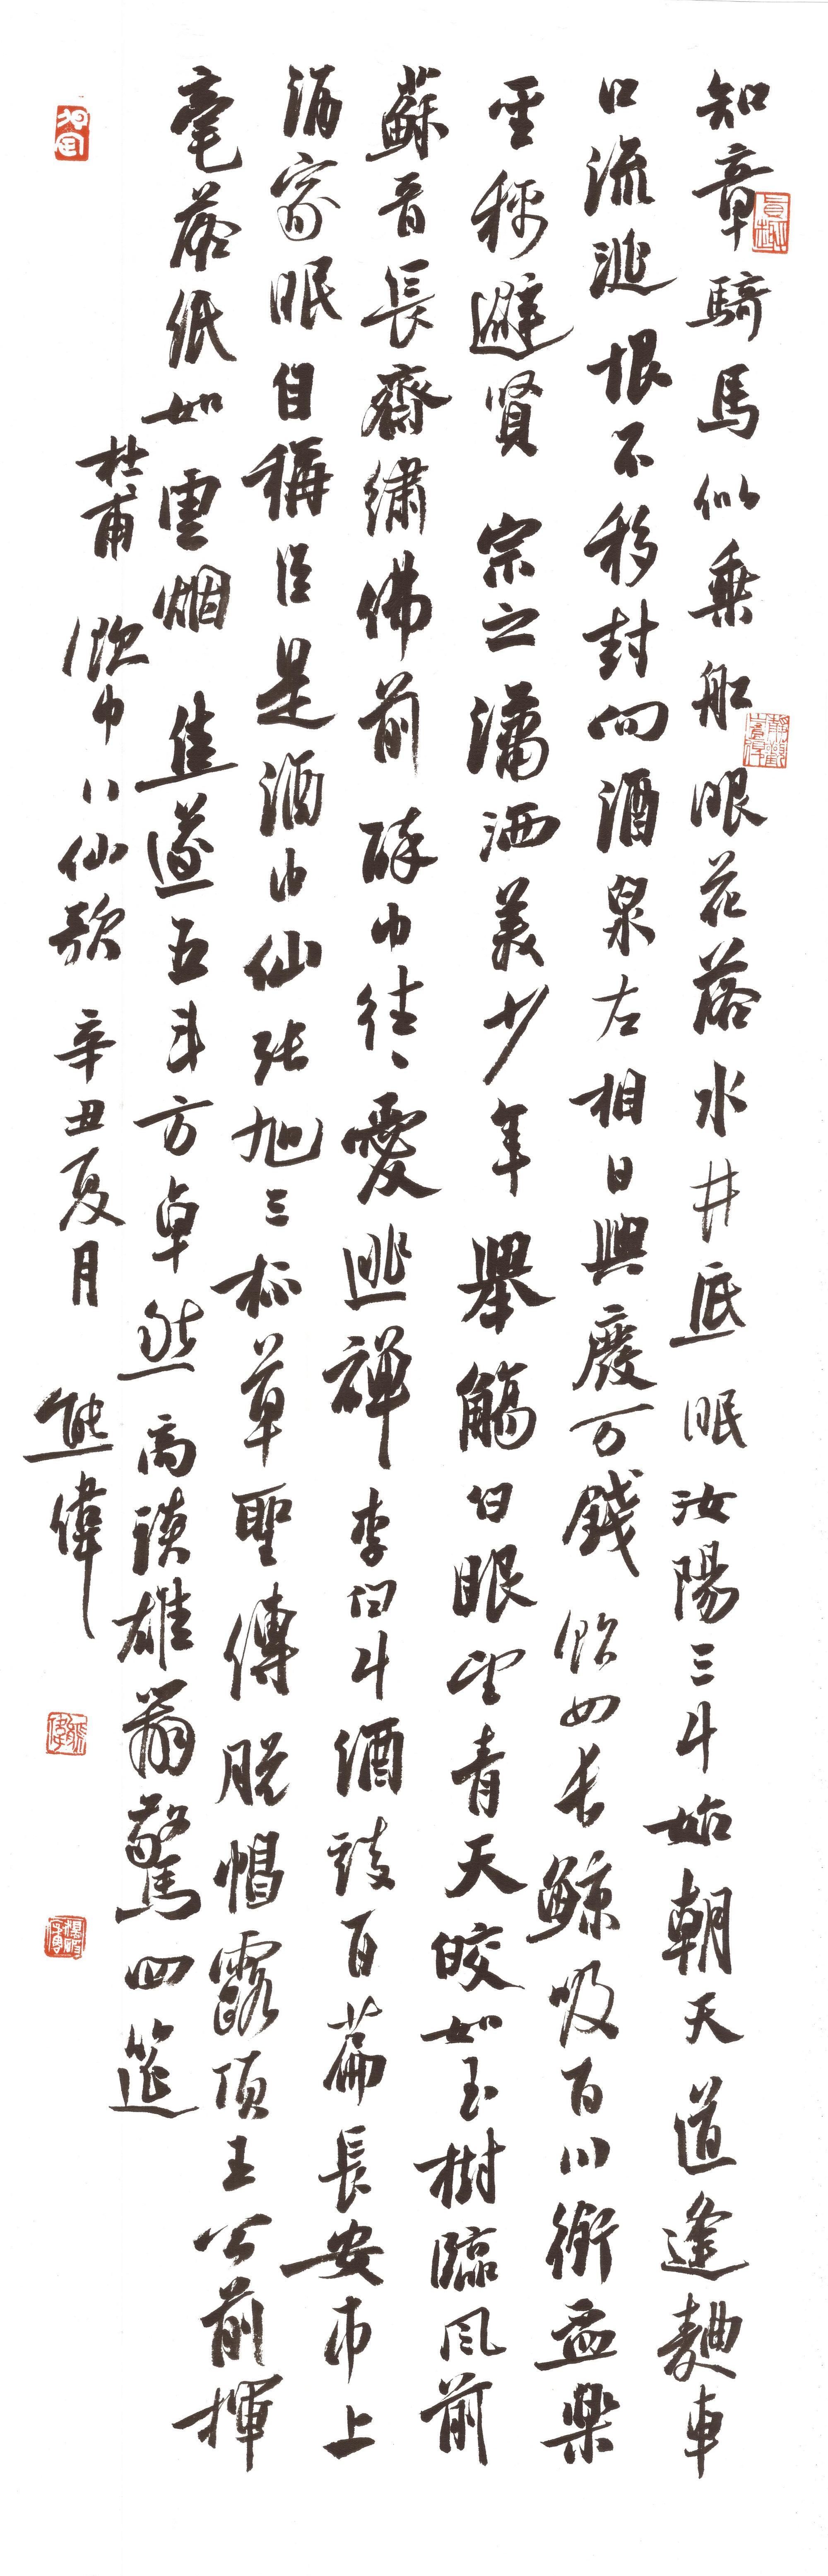 知章騎馬似乘船眼花落水井底眠汝陽三斗始朝天道逢麯車
口流涎恨不移封向酒泉左相日興廢万錢飲如長鯨吸百川銜盃樂
聖称避賢宗之瀟洒美少年舉觴白眼望青天皎如玉樹臨風前
蘇晋長齋繡佛前醉中往々愛逃禪李白斗酒詩百篇長安市上
酒家眠自稱臣是酒中仙张旭三杯草聖傳脱帽露頂王公前揮
毫落紙如雲烟焦遂五斗方卓然高談雄辯驚四筵
杜甫飲中八仙歌辛丑夏月熊偉
熊偉